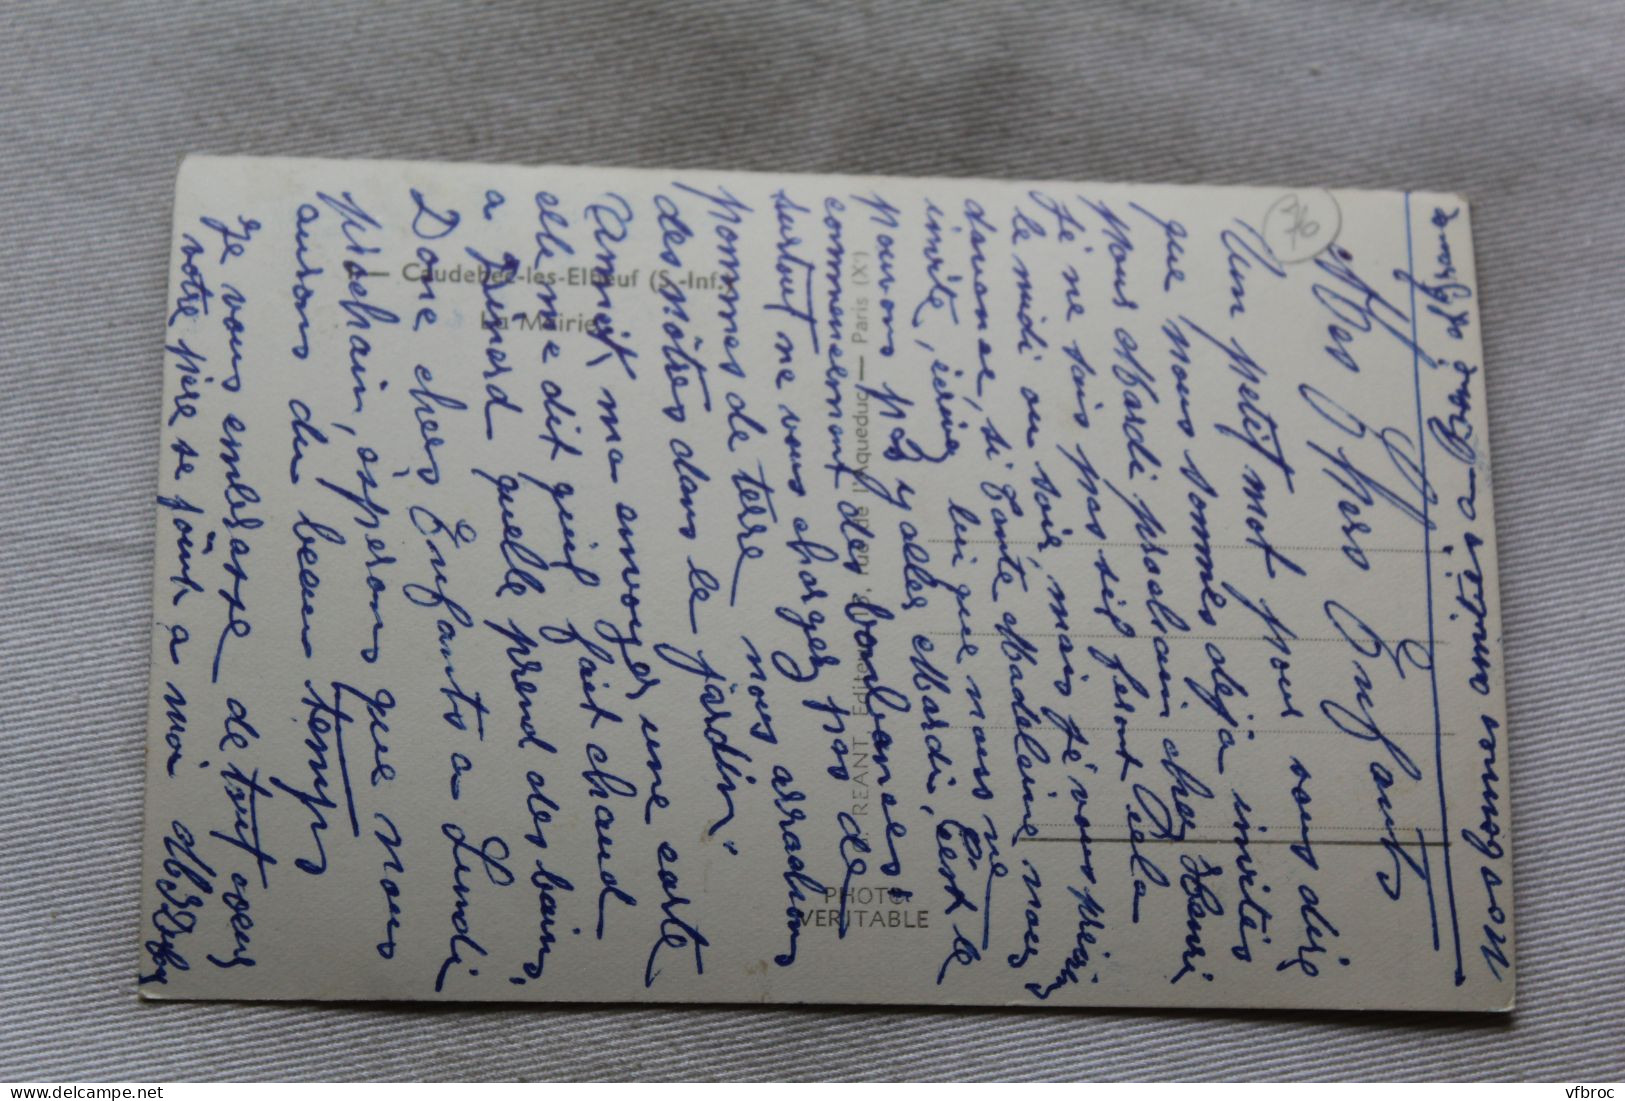 Mes Chers Enfants
Un petit mot pour vous dire
que nous sommes déja invités
pour Mardi prochain chez Henri
Je ne sais pas s'il feront cela
le midi ou le soir, mais je vous préviens
davance, si Tante Madelaine nous
invite, écrivez lui que nous ne
pouvons pas y aller Mardi, C'est le
commencement des
surtout ne vous chargez pas de
pommes de terre nous arrachons
des nôtres dans le jardin.
ma envoyer une carte
elle me dit quil fait chaud
a quelle prend des bains,
Donc chers Enfants a Lundi
prochain, espérons que nous
aurons du beau temps
Je vous embrasse de tout coeur
votre père se joint a moi
76
1 — Caudebec-les-Elbeuf (S.-Inf.)
La Mairie
REANT, Editeur, rue de l'Aqueduc — Paris (Xe)
PHOTO
VERITABLE
vfbroc